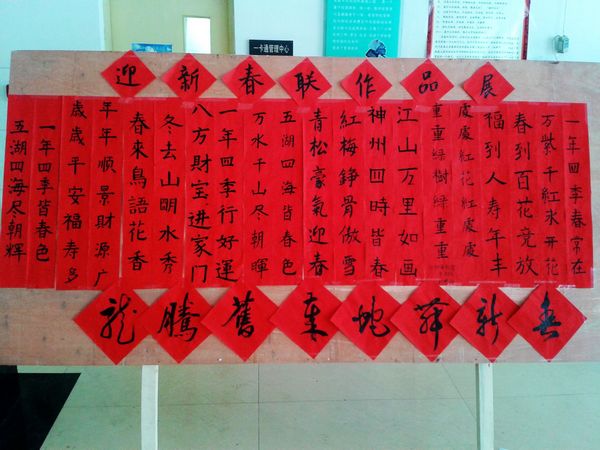 一卡通管理中心
迎新春联作品展
一年四季春常在
万紫千紅永开花
春到百花竞放
福到人寿年丰
處處紅花紅處處
重重绿樹绿重重
江山万里如画
神州四時皆春
紅梅錚骨傲雪
青松豪氣迎春
五湖四海皆春色
万水千山尽朝暉
一年四季行好運
八方財宝进家门
冬去山明水秀
春來鳥語花香
年年順景財源广
歲歲平安福寿多
一年四季皆春色
五湖四海尽朝輝
龍騰舊歲蛇舞新春